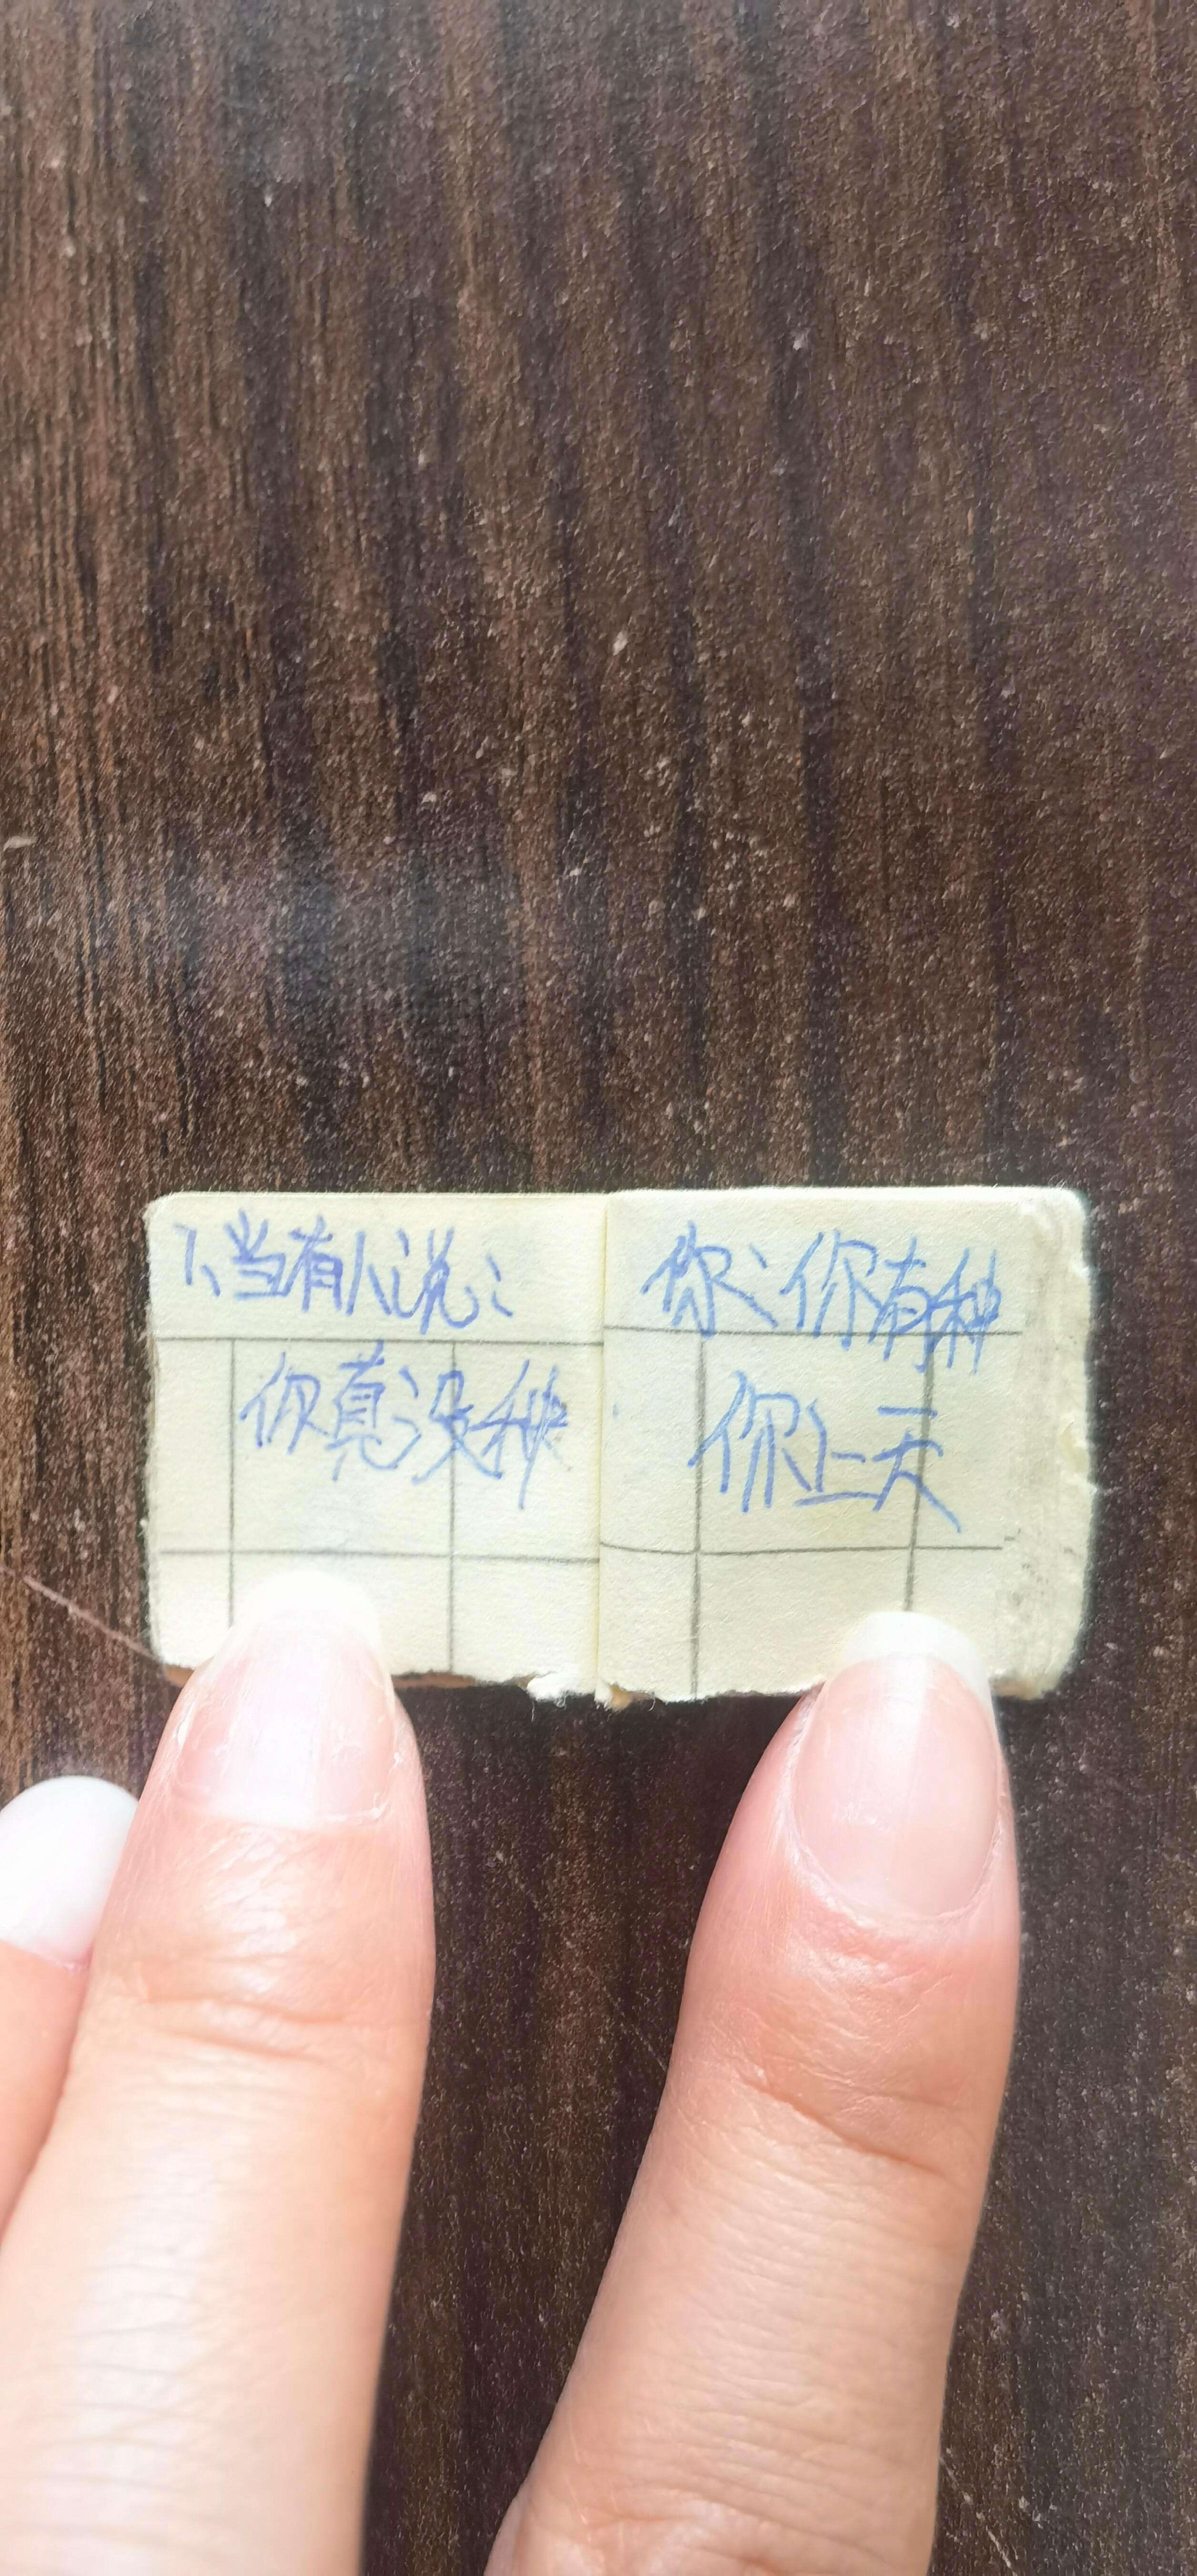 1、当有人说:
你真没种
你:你有种
你上天